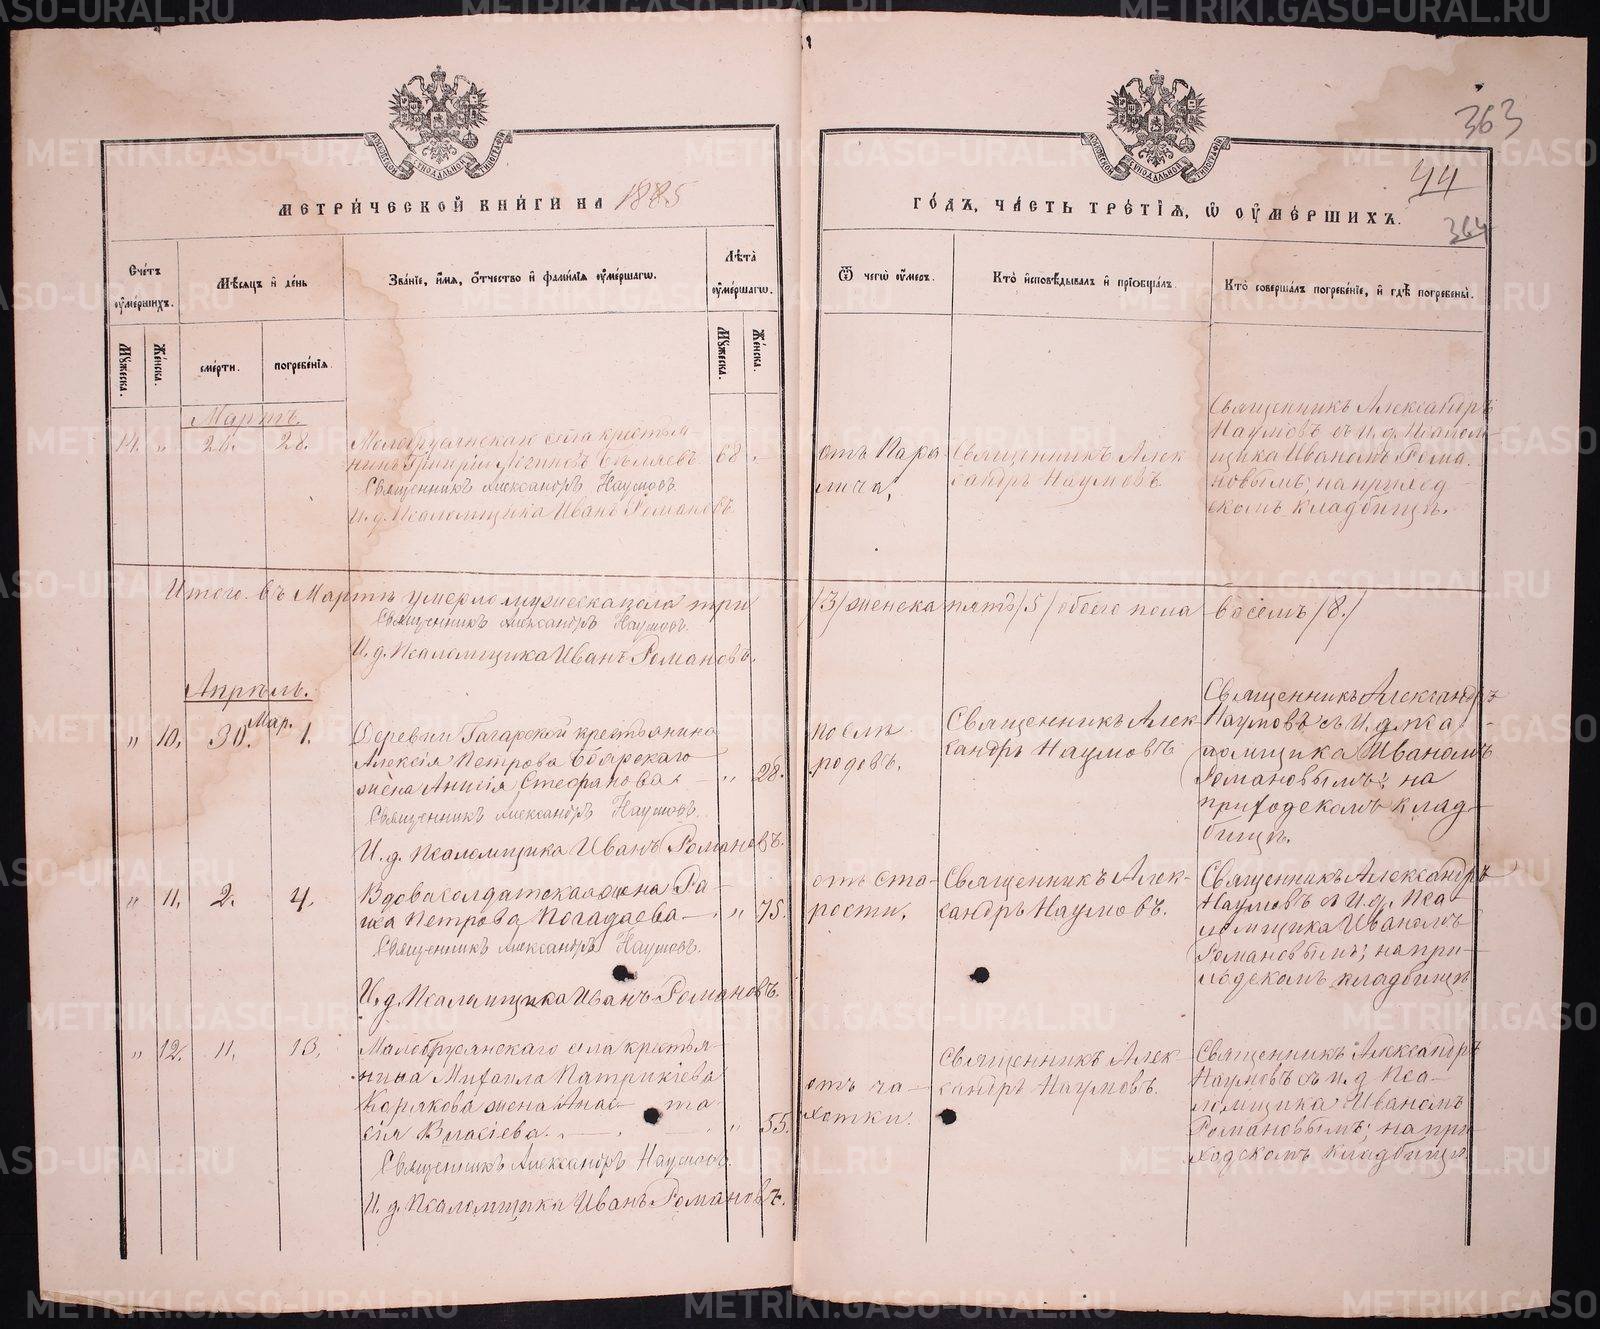 МЕТРИ́ЧЕСКОЙ КНИ́ГИ НА 1885
ГО́ДЪ, ЧА́СТЬ ТРЕ́ТІѦ, Ѽ ОУМЕ́РШИХЪ.
363
44
364
Сче́тъ оуме́ршихъ.
Мѣ́сяцъ и҆ де́нь
Зва́ніе, и҆́мя, ѻ҆́тчество и҆ фами́лія оуме́ршагѡ.
Лѣта̀ оуме́ршагѡ.
Ѿ чегѡ̀ оу́меръ.
Кто̀ и҆сповѣ́дывалъ и҆ пріѡбща́лъ.
Кто̀ соверша́лъ погребе́ніе, и҆ гдѣ̀ погребены̀.
Мꙋ́жеска.
Же́нска.
сме́рти.
погребе́нія.
Мꙋ́жеска.
Же́нска.
Мартъ.
14. " 26. 28.
Малобрусянскаго села крестья
нинъ Григорій Бѣляевъ 68 "
Священникъ Александръ Наумовъ
И. д. Псаломщика Иванъ Романовъ
отъ Пара
лича,
Священникъ Алек
сандръ Наумовъ
Священникъ Александръ
Наумовъ съ И. д. Псалом-
щика Иваномъ Рома
новымъ; на приход
скомъ кладбищѣ.
Итого въ Мартѣ умерло мужеска пола три /3/ женска пять /5/ обоего пола восемь /8./
Священникъ Александръ Наумовъ.
И. д. Псаломщика Иванъ Романовъ.
Апрѣль.
" 10. 30. Мар. 1.
Деревни Гагарской крестьянина
Алексія Петрова Боярскаго
жена Анисія Стефанова " 28.
Священникъ Александръ Наумовъ.
И. д. Псаломщика Иванъ Романовъ.
послѣ
родовъ.
Священникъ Алек
сандръ Наумовъ
Священникъ Александръ
Наумовъ съ И. д. Пса-
ломщика Иваномъ
Романовымъ; на
приходскомъ клад-
бищѣ.
" 11. 2. 4.
Вдова солдатская жена Ра-
иса Петрова Погадаева " 75.
Священникъ Александръ Наумовъ.
И. д. Псаломщика Иванъ Романовъ.
отъ ста-
рости.
Священникъ Алек-
сандръ Наумовъ.
Священникъ Александръ
Наумовъ съ И. д. Пса-
ломщика Иваномъ
Романовымъ; на при-
ходскомъ кладбищѣ
" 12. 11. 13.
Малобрусянскаго села крестья-
нина Михаила Патрикіева
Корякова жена Анас- та
сія Власіева. " 55.
Священникъ Александръ Наумовъ.
И. д. Псаломщика Иванъ Романовъ.
отъ ча-
хотки.
Священникъ Алек
сандръ Наумовъ.
Священникъ Александръ
Наумовъ съ и. д. Пса-
ломщика Иваномъ
Романовымъ; на при-
ходскомъ кладбищѣ
METRIKI.GASO-URAL.RU